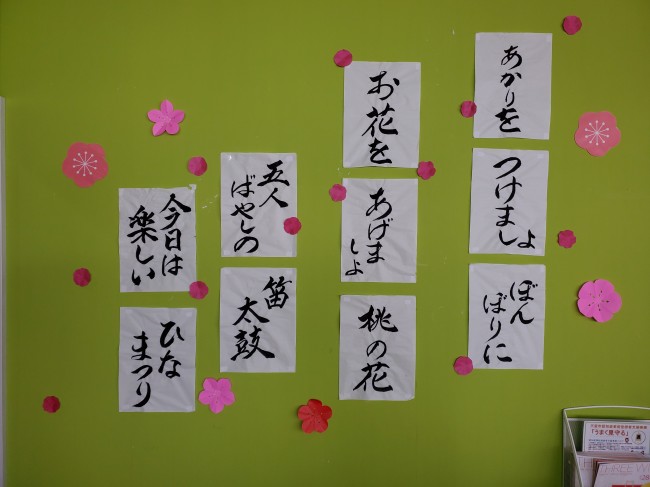 あかりを
つけましよ
ぼん
ぼりに
お花を
あげま
しよ
桃の花
五人
ばやしの
笛
太鼓
今日は
楽しい
ひな
まつり
「うまく見守る」